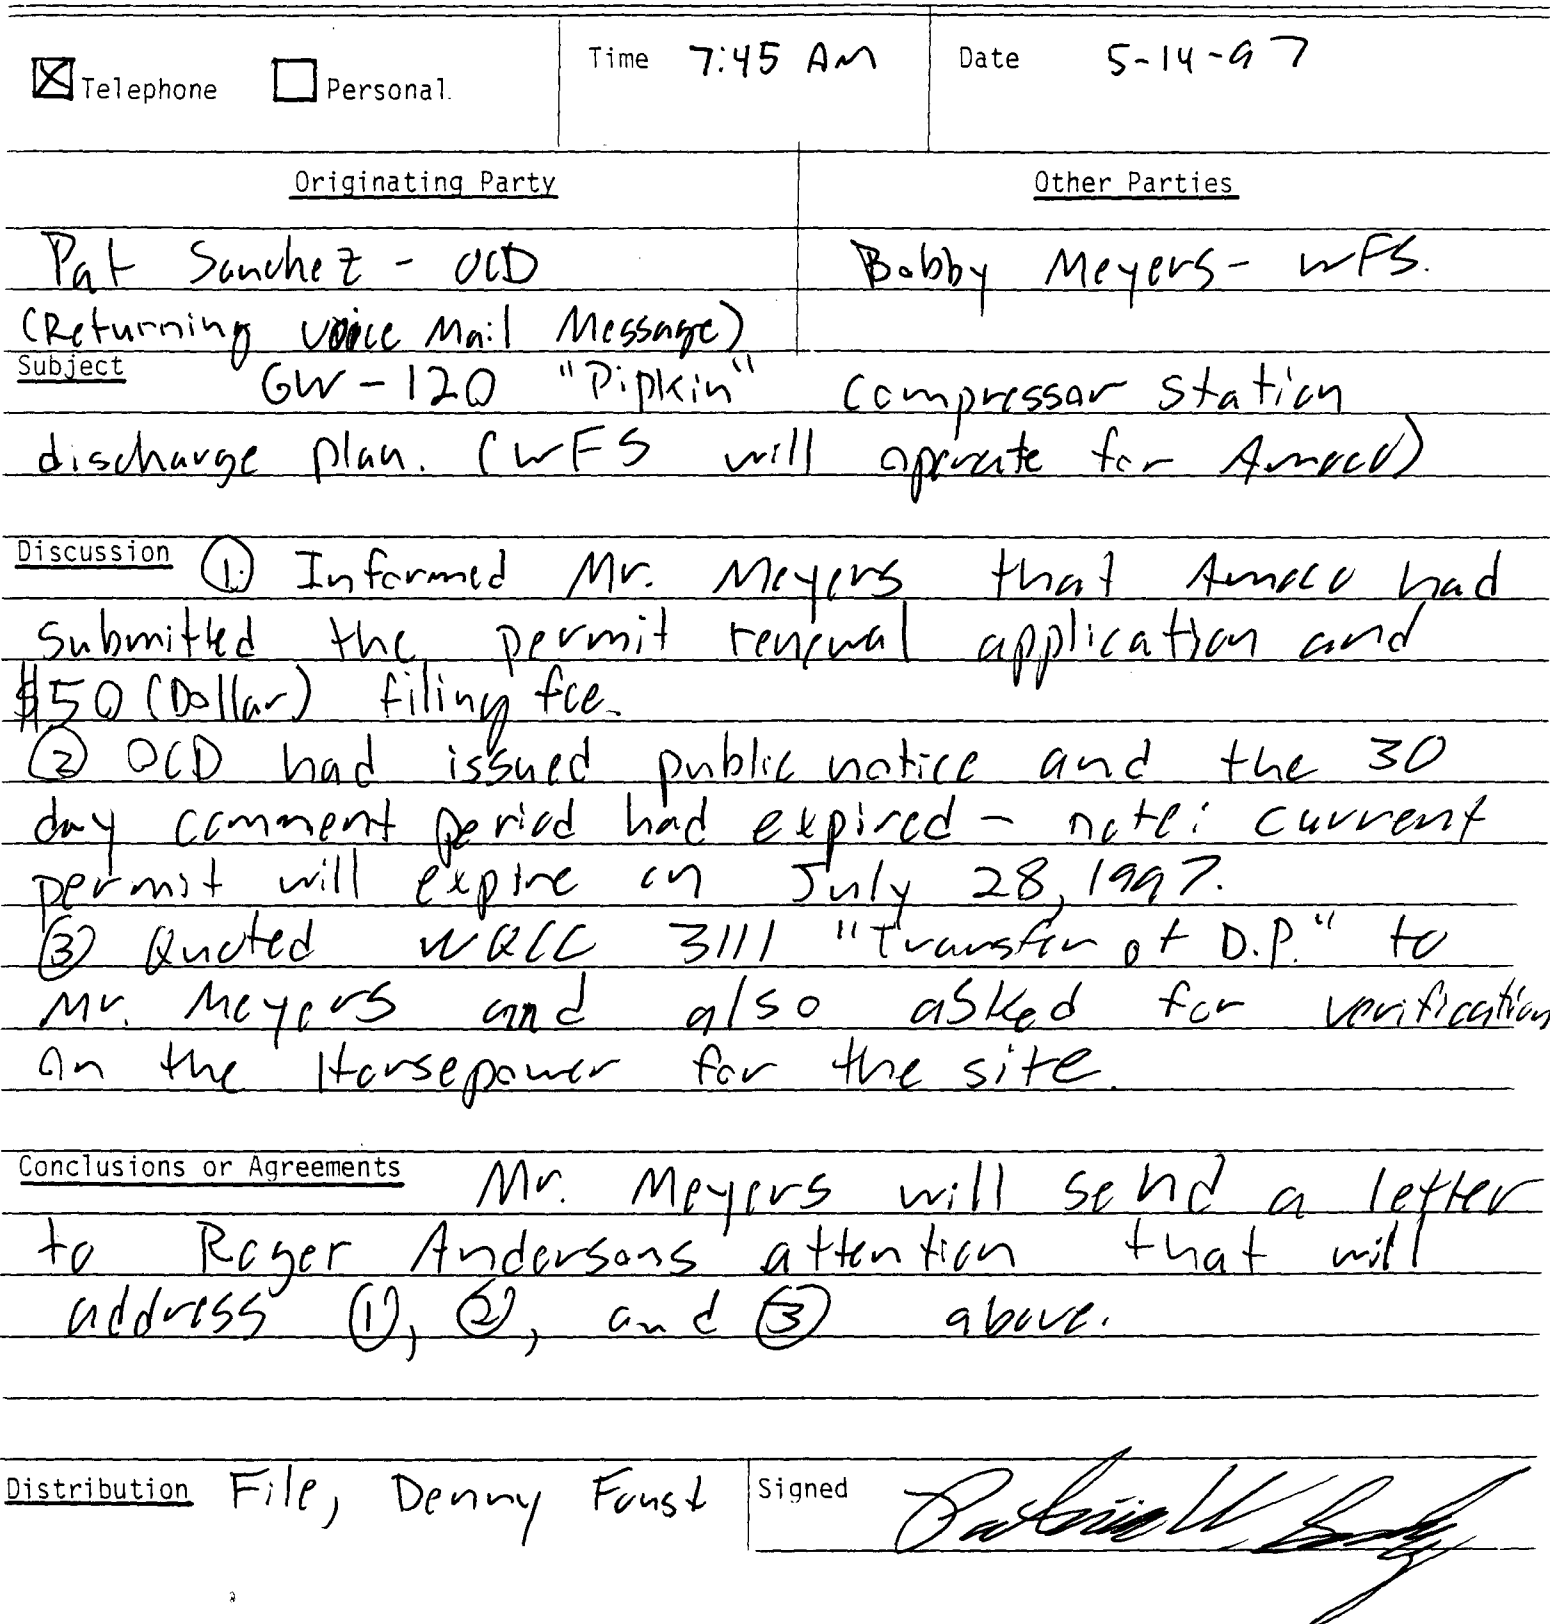 Telephone Personal Time 7:45 AM Date 5-14-97
Originating Party Other Parties
Pat Sanchez - OCD Bobby Meyers - WFS.
(Returning voice Mail Message)
Subject GW-120 "Pipkin" Compressor Station
discharge plan. (WFS will operate for Amoco)
Discussion ① Informed Mr. Meyers that Amoco had
submitted the permit renewal application and
$50 (Dollar) filing fee.
② OCD had issued public notice and the 30
day comment period had expired - note: current
permit will expire on July 28, 1997.
③ Quoted WQCC 3111 "Transfer of D.P." to
Mr. Meyers and also asked for verification
on the Horsepower for the site.
Conclusions or Agreements Mr. Meyers will send a letter
to Roger Andersons attention that will
address ①, ②, and ③ above.
Distribution File, Denny Foust Signed